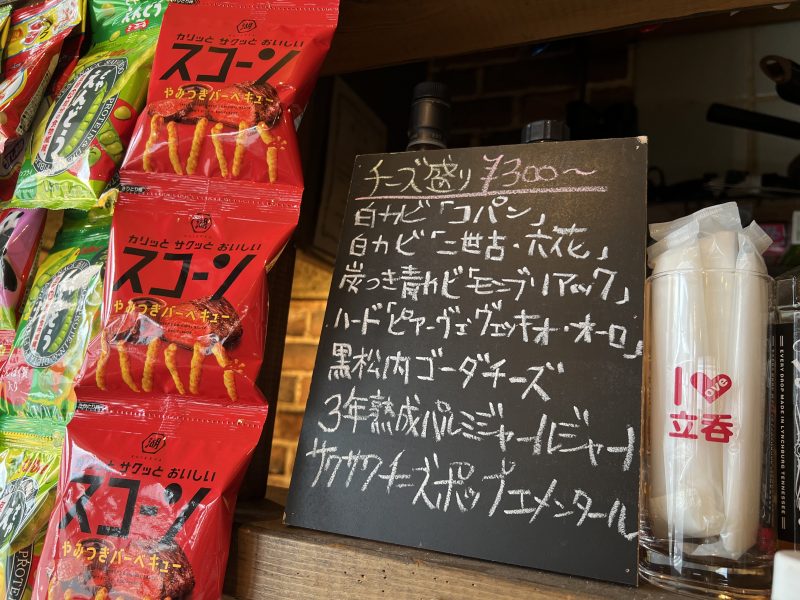 カリッと サクッと おいしい
スコーン
やみつきバーベキュー
カリッと サクッと おいしい
スコーン
やみつきバーベキュー
湖
サクッと おいしい
スコーン
やみつきバーベキュー
チーズ盛り ¥300〜
白カビ「コパン」
白カビ「二世古・六花」
炭つき青カビ「モンブリアック」
ハード「ピアーヴェ・ヴェッキオ・オーロ」
黒松内ゴーダチーズ
3年熟成パルミジャールジャーノ
サクサクチーズポップエメンタール
I Love
立呑
EVERY DROP MADE IN LYNCHBURG TENNESSEE